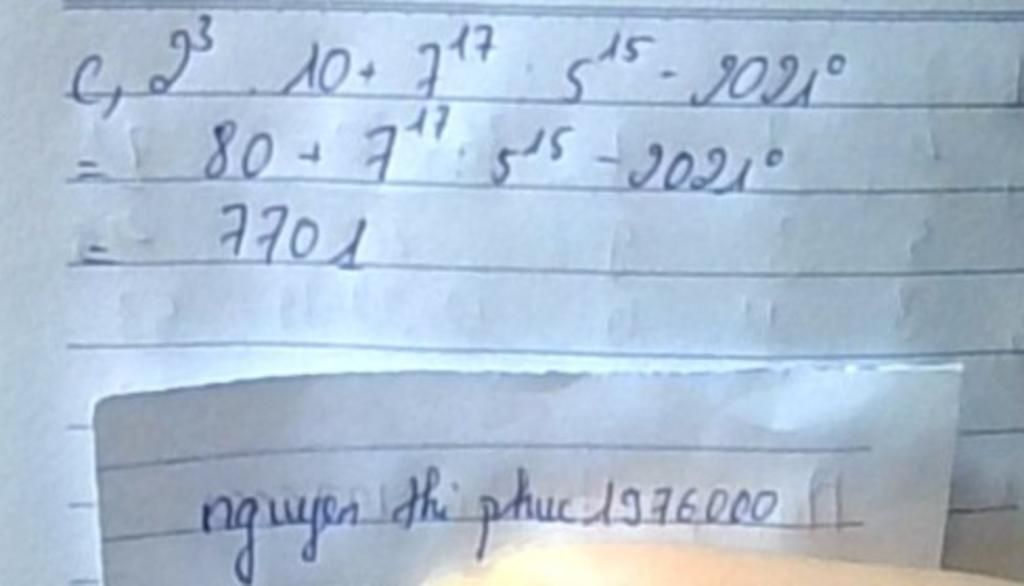 c, 2³ . 10 + 7¹⁷ : 5¹⁵ - 2021⁰
= 80 + 7¹⁷ : 5¹⁵ - 2021⁰
= 7701
nguyen thi phuc 1976000